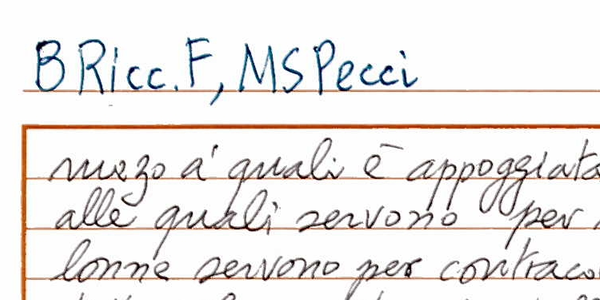 B Ricc. F, MS Pecci
mezo a' quali è appoggiata
alle quali servono per
lonne servono per contraco